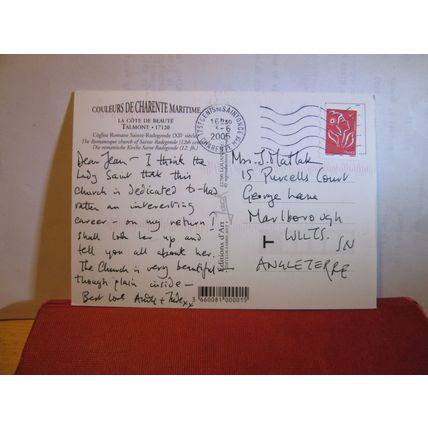 COULEURS DE CHARENTE MARITIME
LA CÔTE DE BEAUTÉ
TALMONT • 17120
L'église Romane Sainte-Radegonde (XIIe siècle)
The Romanesque church of Sainte Radegonde (12th
Die romanische Kirche Sainte Radegonde (12. Jh.
Dear Jean - I think the
Lady Saint that this
Church is dedicated to had
rather an interesting
career - on my return I
shall look her up and
tell you all about her.
The Church is very beautiful
though plain inside -
Best love
xx
17 ST GENIS DE SAINTONGE
CHARENTE
16H30
2006
Mrs. J. Matlak
15 Purcells Court
George Lane
Marlborough
WILTS.
SN
ANGLETERRE
Editions d'Art
3 660081 000019